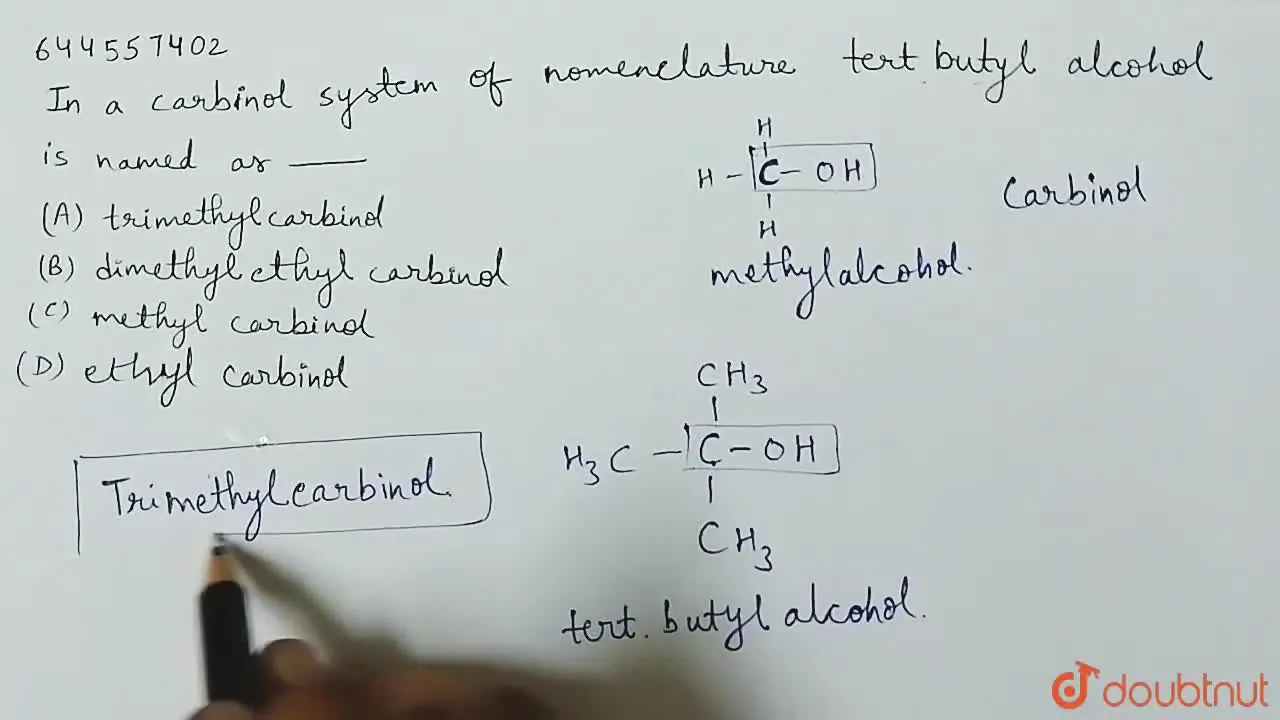 644557402
In a carbinol system of nomenclature tert butyl alcohol
is named as ——
(A) trimethylcarbinol
(B) dimethyl ethyl carbinol
(C) methyl carbinol
(D) ethyl carbinol
Trimethylcarbinol.
H
H - C - OH
H
methylalcohol.
Carbinol
CH3
H3C - C - OH
CH3
tert. butyl alcohol.
doubtnut